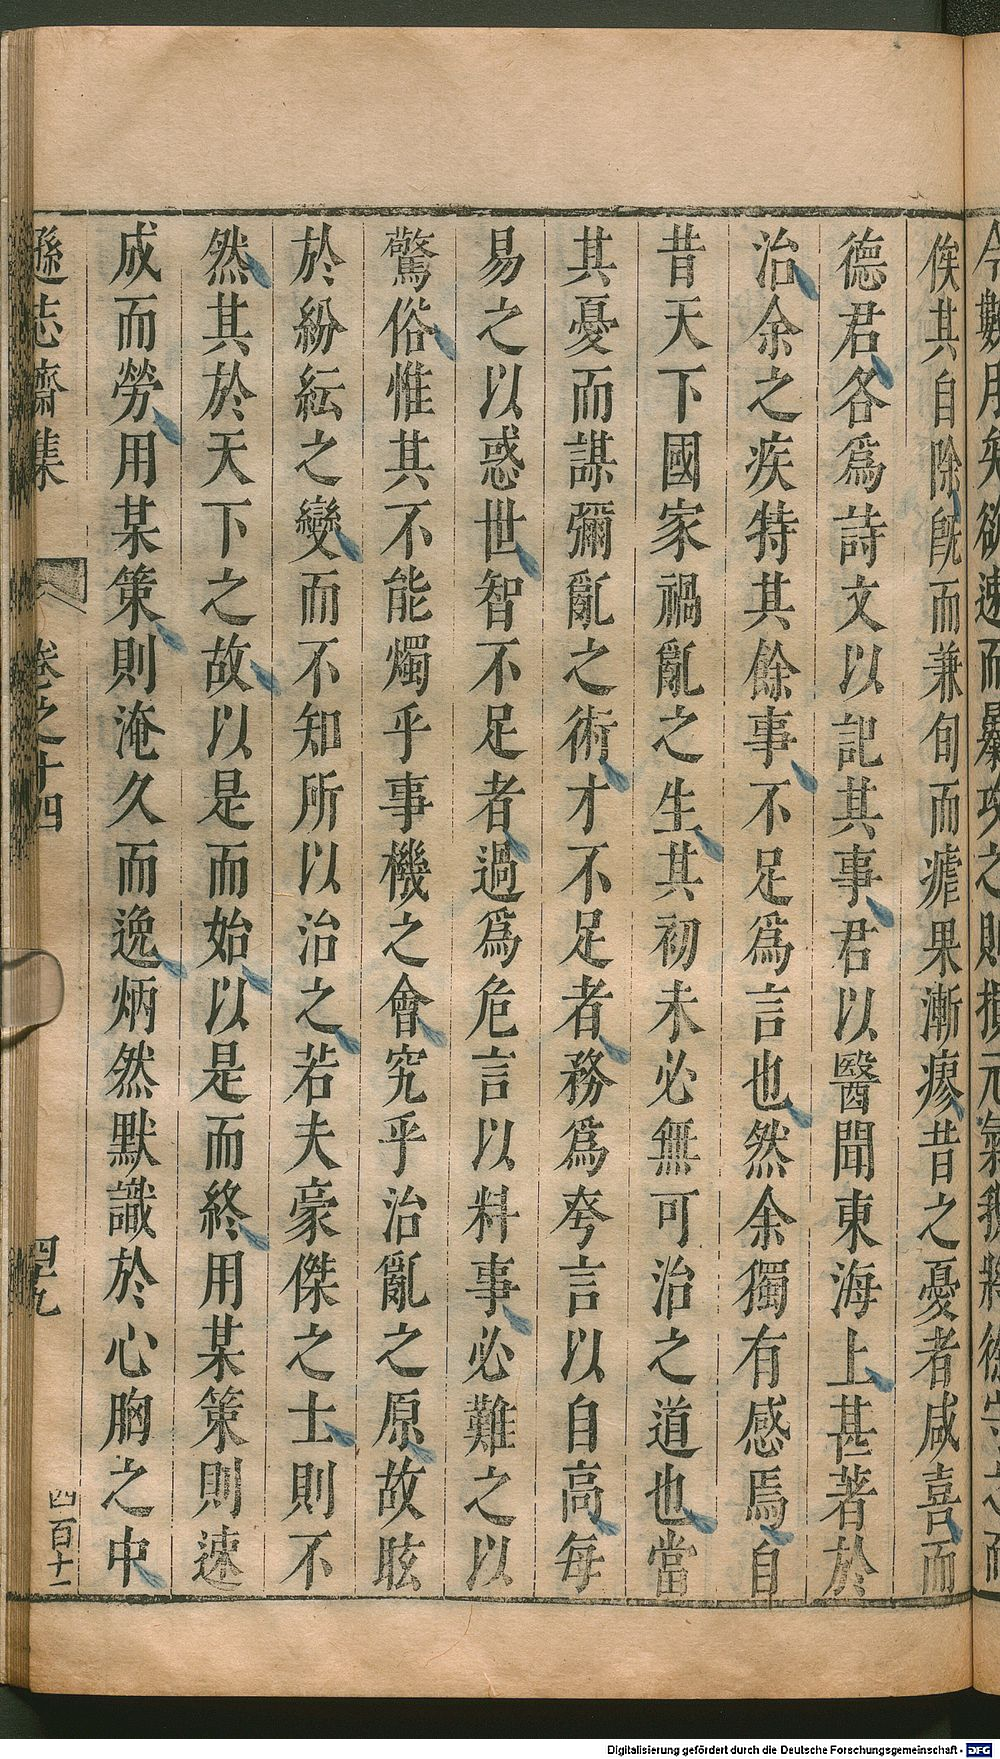 俟其自除旣而兼旬而瘧果漸瘳昔之憂者咸喜而
德君各爲詩文以記其事君以醫聞東海上甚著於
治余之疾特其餘事不足爲言也然余獨有感焉自
昔天下國家禍亂之生其初未必無可治之道也當
其憂而謀彌亂之術才不足者務爲夸言以自高每
易之以惑世智不足者過爲危言以料事必難之以
驚俗惟其不能燭乎事機之會究乎治亂之原故眩
於紛紜之變而不知所以治之若夫豪傑之士則不
然其於天下之故以是而始以是而終用某策則速
成而勞用某策則淹久而逸炳然默識於心胸之中
遜志齋集 卷之十四 四九 四百十一
Digitalisierung gefördert durch die Deutsche Forschungsgemeinschaft - DFG